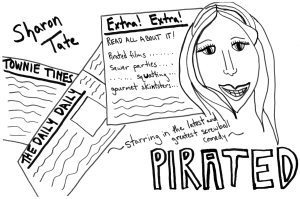 Sharon
Tate
TOWNIE TIMES
THE DAILY DAILY
Extra! Extra!
READ ALL ABOUT IT!
Pirated films ......
Sewer parties .....
...... squatting
gourmet skintillers...
~starring in the latest and
greatest screwball
comedy~
PIRATED